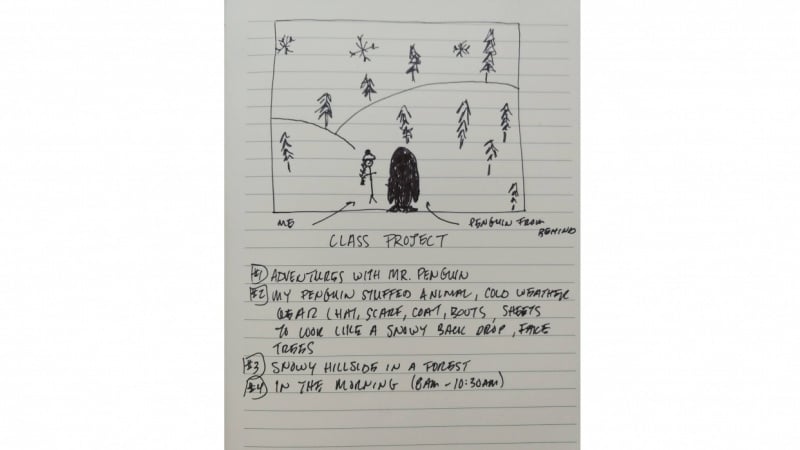 ME
PENGUIN FROM
BEHIND
CLASS PROJECT
#1 ADVENTURES WITH MR. PENGUIN
#2 MY PENGUIN STUFFED ANIMAL, COLD WEATHER
GEAR (HAT, SCARF, COAT, BOOTS, SHEETS
TO LOOK LIKE A SNOWY BACK DROP, FAKE
TREES
#3 SNOWY HILLSIDE IN A FOREST
#4 IN THE MORNING (8AM - 10:30AM)